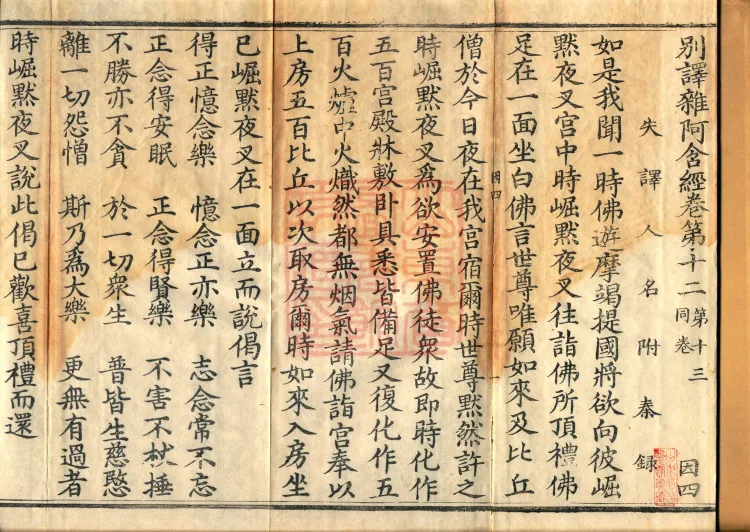 別譯雜阿含經卷第十二 第十三同卷 因四
失譯人名附秦録
如是我聞一時佛遊摩竭提國將欲向彼崛
默夜叉宮中時崛默夜叉往詣佛所頂禮佛
足在一面坐白佛言世尊唯願如來及比丘
僧於今日夜在我宮宿爾時世尊默然許之
因四
時崛默夜叉爲欲安置佛徒衆故即時化作
五百宮殿牀敷卧具悉皆備足又復化作五
百火爐中火熾然都無烟氣請佛詣宮奉以
上房五百比丘以次取房爾時如來入房坐
已崛默夜叉在一面立而說偈言
得正憶念樂 憶念正亦樂 志念常不忘
正念得安眠 正念得賢樂 不害不杖捶
不勝亦不貪 於一切衆生 普皆生慈愍
離一切怨憎 斯乃爲大樂 更無有過者
時崛默夜叉說此偈已歡喜頂禮而還